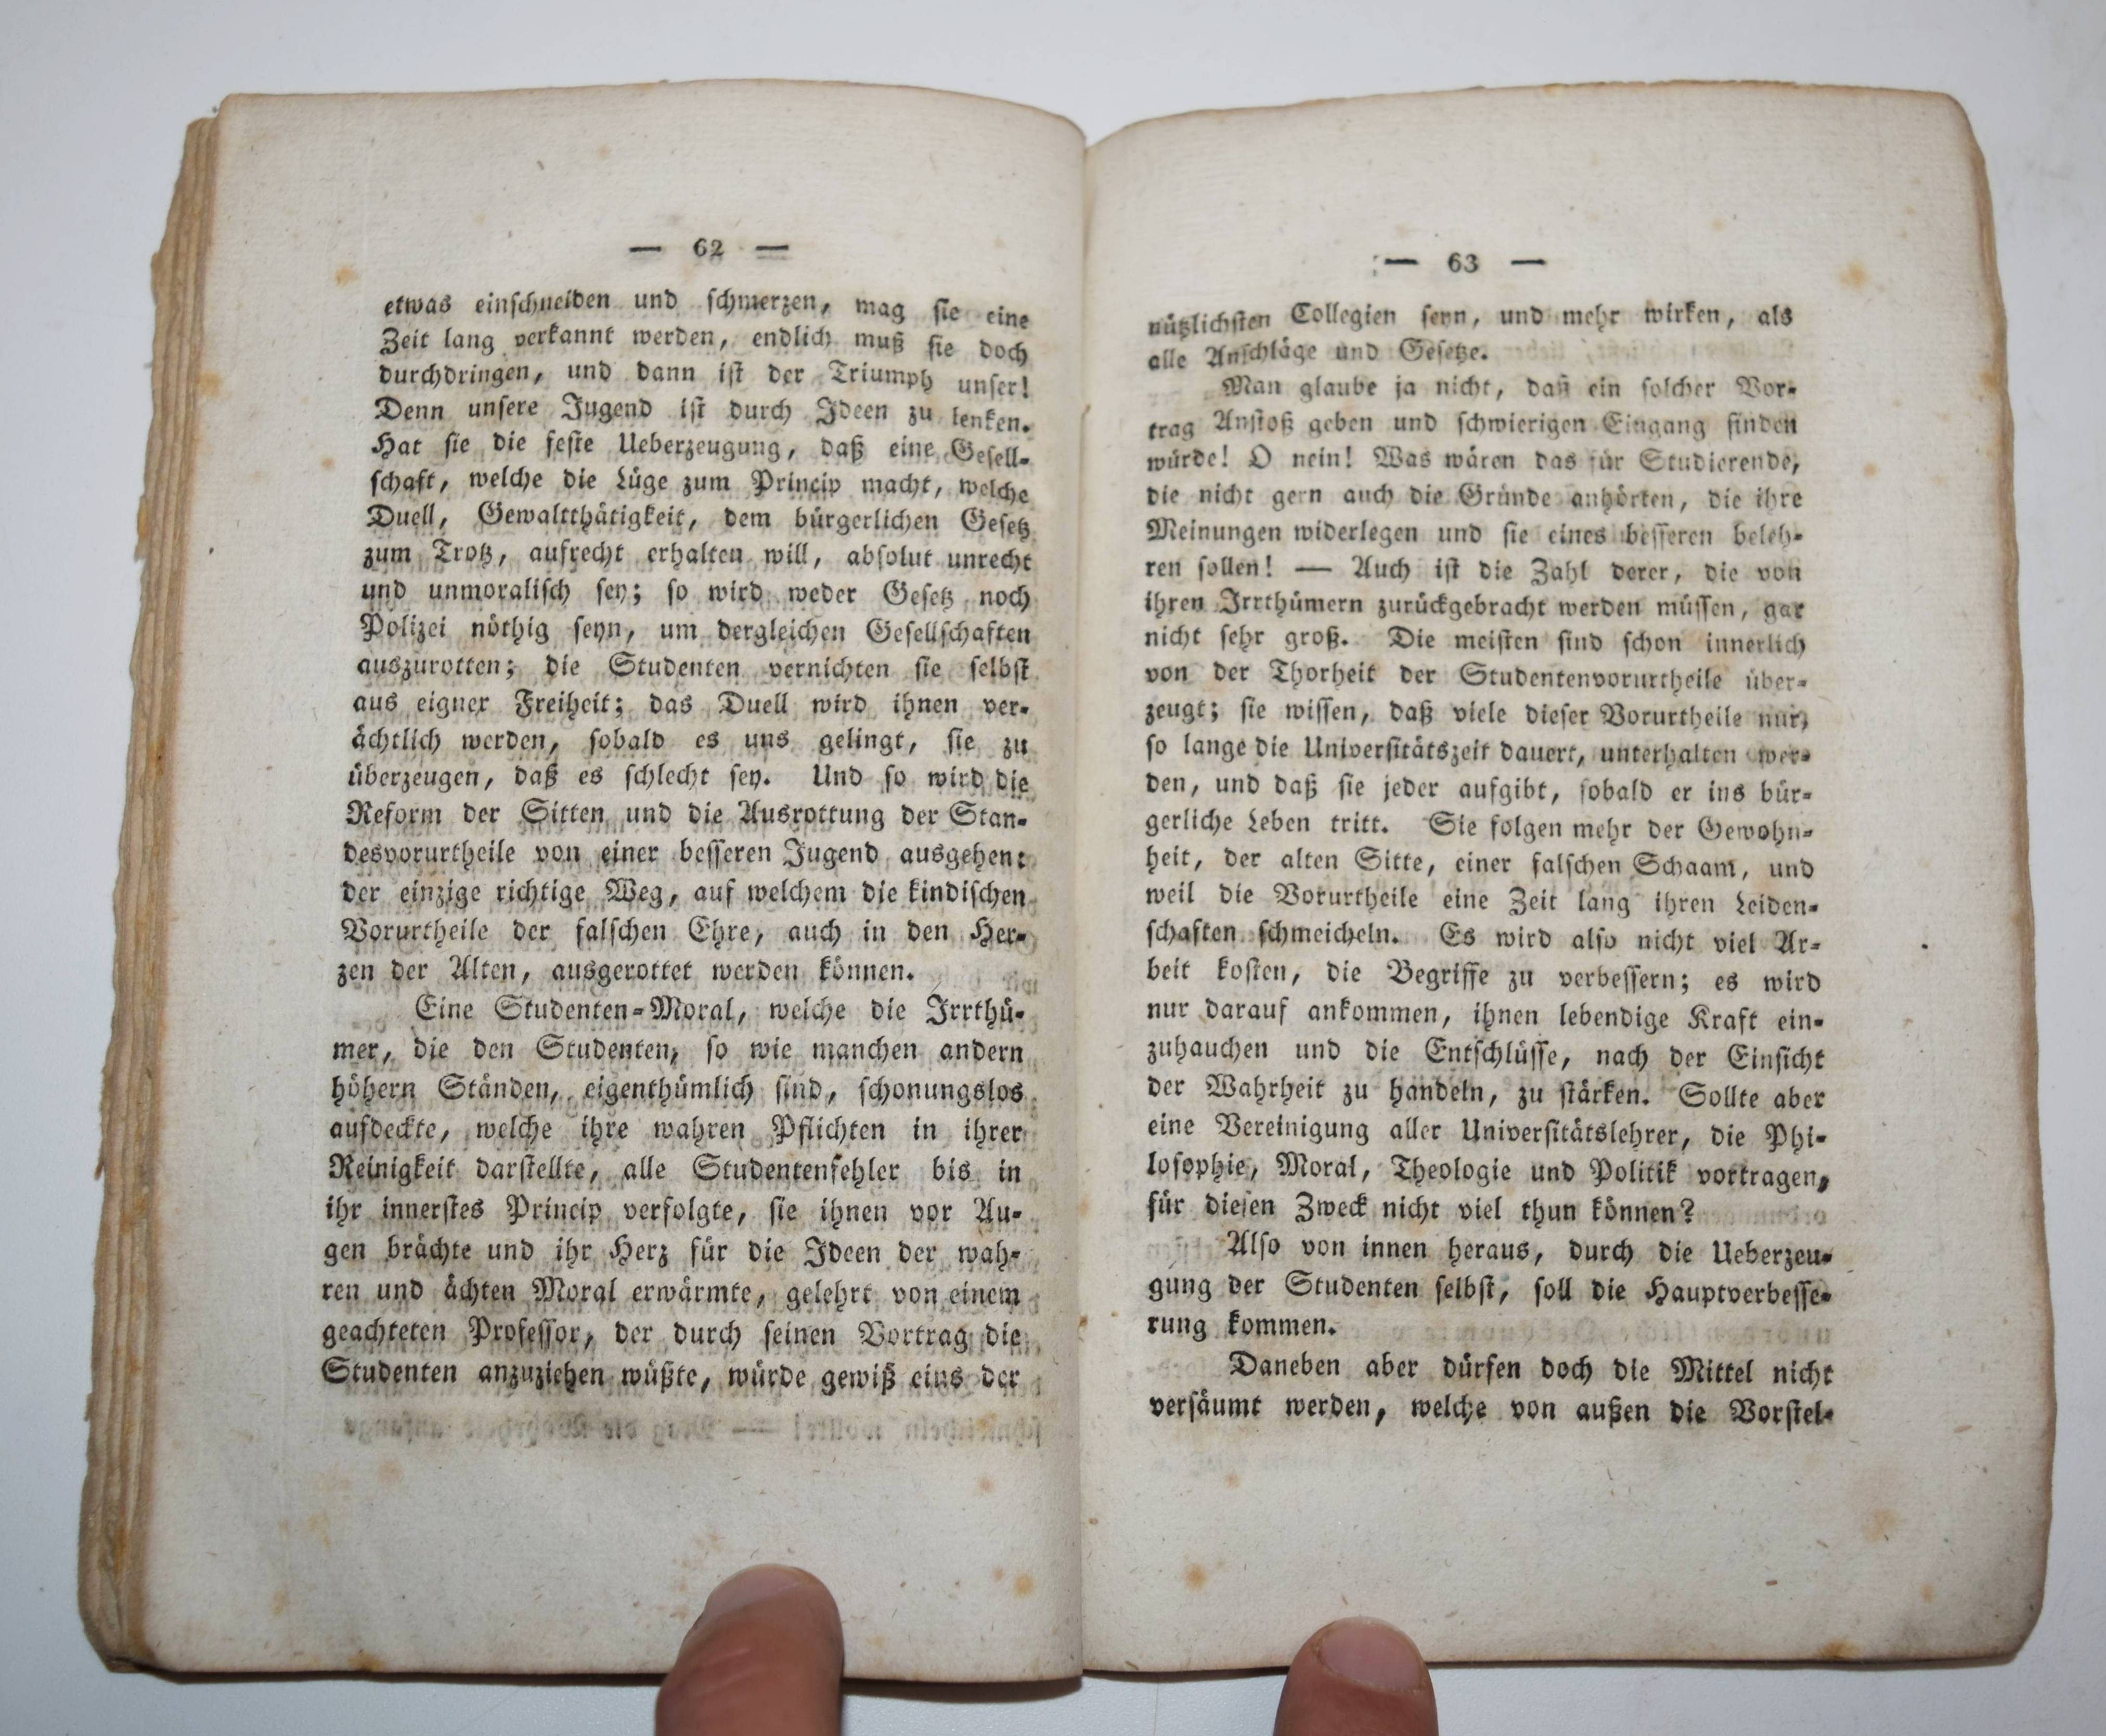 — 62 —
etwas einschneiden und schmerzen, mag sie eine
Zeit lang verkannt werden, endlich muß sie doch
durchdringen, und dann ist der Triumph unser!
Denn unsere Jugend ist durch Ideen zu lenken.
Hat sie die feste Ueberzeugung, daß eine Gesell-
schaft, welche die Lüge zum Princip macht, welche
Duell, Gewaltthätigkeit, dem bürgerlichen Gesetz
zum Trotz, aufrecht erhalten will, absolut unrecht
und unmoralisch sey; so wird weder Gesetz noch
Polizei nöthig seyn, um dergleichen Gesellschaften
auszurotten; die Studenten vernichten sie selbst
aus eigner Freiheit; das Duell wird ihnen ver-
ächtlich werden, sobald es uns gelingt, sie zu
überzeugen, daß es schlecht sey. Und so wird die
Reform der Sitten und die Ausrottung der Stan-
desvorurtheile von einer besseren Jugend ausgehen:
der einzige richtige Weg, auf welchem die kindischen
Vorurtheile der falschen Ehre, auch in den Her-
zen der Alten, ausgerottet werden können.
Eine Studenten-Moral, welche die Irrthü-
mer, die den Studenten, so wie manchen andern
höhern Ständen, eigenthümlich sind, schonungslos
aufdeckte, welche ihre wahren Pflichten in ihrer
Reinigkeit darstellte, alle Studentenfehler bis in
ihr innerstes Princip verfolgte, sie ihnen vor Au-
gen brächte und ihr Herz für die Ideen der wah-
ren und ächten Moral erwärmte, gelehrt von einem
geachteten Professor, der durch seinen Vortrag die
Studenten anzuziehen wüßte, würde gewiß eins der
— 63 —
nützlichsten Collegien seyn, und mehr wirken, als
alle Anschläge und Gesetze.
Man glaube ja nicht, daß ein solcher Vor-
trag Anstoß geben und schwierigen Eingang finden
würde! O nein! Was wären das für Studierende,
die nicht gern auch die Gründe anhörten, die ihre
Meinungen widerlegen und sie eines besseren beleh-
ren sollen! — Auch ist die Zahl derer, die von
ihren Irrthümern zurückgebracht werden müssen, gar
nicht sehr groß. Die meisten sind schon innerlich
von der Thorheit der Studentenvorurtheile über-
zeugt; sie wissen, daß viele dieser Vorurtheile nur,
so lange die Universitätszeit dauert, unterhalten wer-
den, und daß sie jeder aufgibt, sobald er ins bür-
gerliche Leben tritt. Sie folgen mehr der Gewohn-
heit, der alten Sitte, einer falschen Schaam, und
weil die Vorurtheile eine Zeit lang ihren Leiden-
schaften schmeicheln. Es wird also nicht viel Ar-
beit kosten, die Begriffe zu verbessern; es wird
nur darauf ankommen, ihnen lebendige Kraft ein-
zuhauchen und die Entschlüsse, nach der Einsicht
der Wahrheit zu handeln, zu stärken. Sollte aber
eine Vereinigung aller Universitätslehrer, die Phi-
losophie, Moral, Theologie und Politik vortragen,
für diesen Zweck nicht viel thun können?
Also von innen heraus, durch die Ueberzeu-
gung der Studenten selbst, soll die Hauptverbesse-
rung kommen.
Daneben aber dürfen doch die Mittel nicht
versäumt werden, welche von außen die Vorstel-